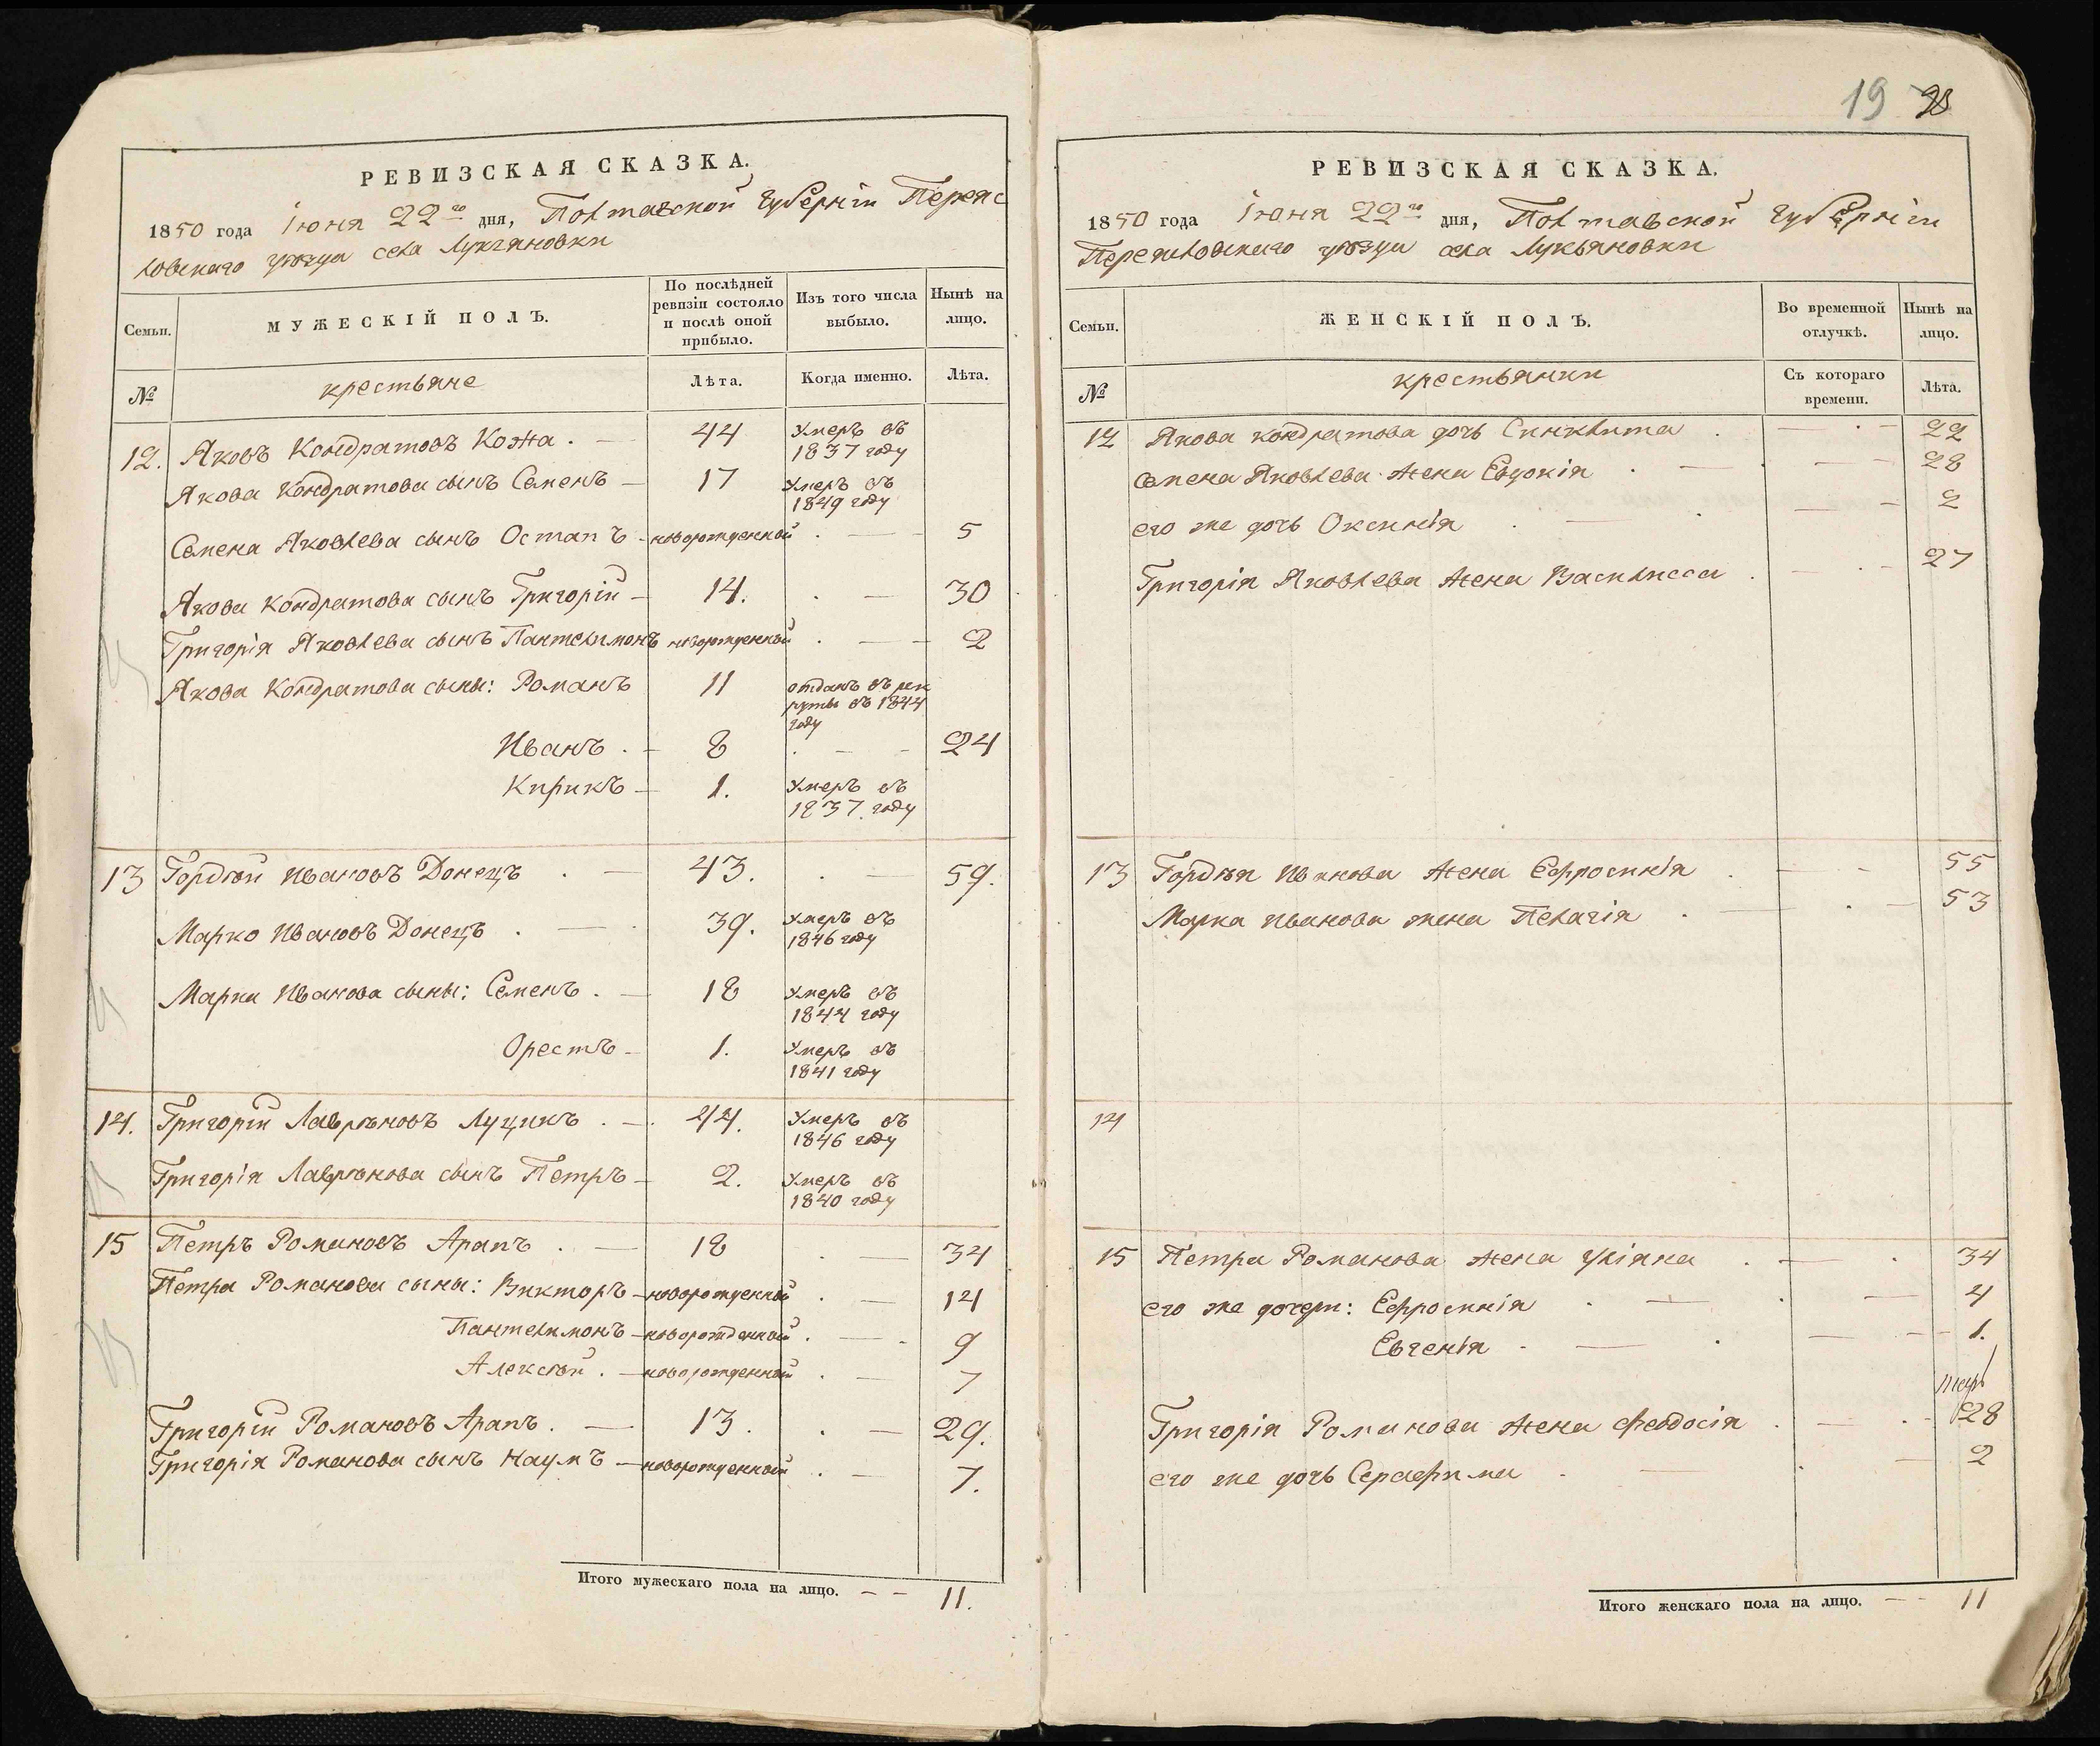 19 28
РЕВИЗСКАЯ СКАЗКА.
1850 года Іюня 22го дня, Полтавской Губерніи Переяс
ловскаго уѣзда села Лукьяновки
Семьи.
МУЖЕСКІЙ ПОЛЪ.
По послѣдней ревизіи состояло и послѣ оной прибыло.
Изъ того числа выбыло.
Нынѣ на лицо.
№
крестьяне
Лѣта.
Когда именно.
Лѣта.
12. Яковъ Кондратовъ Кожа . — 44 Умеръ въ 1837 году
Якова Кондратова сынъ Семенъ — 17 Умеръ въ 1849 году
Семена Яковлева сынъ Остапъ - новорожденный . — 5
Якова Кондратова сынъ Григорій — 14. . — 30
Григорія Яковлева сынъ Пантелимонъ новорожденный . — 2
Якова Кондратова сыны: Романъ 11 отданъ въ рек руты въ 1844 году
Иванъ . - 8 . - - 24
Кирикъ — 1. Умеръ въ 1837. году
13 Гордѣй Ивановъ Донецъ . — 43. . — 59.
Марко Ивановъ Донецъ . — 39. Умеръ въ 1846 году
Марка Иванова сыны: Семенъ . — 18 Умеръ въ 1844 году
Орестъ - 1. Умеръ въ 1841 году
14. Григорій Лаврѣновъ Луцикъ . — 44. Умеръ въ 1846 году
Григорія Лаврѣнова сынъ Петръ — 2. Умеръ въ 1840 году
15 Петръ Романовъ Арапъ . — 18 . — 34
Петра Романова сыны: Викторъ — новорожденный . — 14
Пантелимонъ — новорожденный . — 9
Алексѣй . — новорожденный . — 7
Григорій Романовъ Арапъ . — 13. . — 29.
Григорія Романова сынъ Наумъ — новорожденный . — 7.
Итого мужескаго пола на лицо. — — 11.
РЕВИЗСКАЯ СКАЗКА.
1850 года Іюня 22го дня, Полтавской Губерніи
Переяловскаго уѣзда села Лукьяновки
Семьи.
ЖЕНСКІЙ ПОЛЪ.
Во временной отлучкѣ.
Нынѣ на лицо.
№
крестьянки
Съ котораго времени.
Лѣта.
12 Якова Кондратова дочь Синклита . — 22
Семена Яковлева жена Евдокія . — 28
его же дочь Оксинія . — 2
Григорія Яковлева жена Василисса . — 27
13 Гордѣя Иванова жена Ефросинія . — 55
Марка Иванова жена Пелагія . — 53
14
15 Петра Романова жена Уліяна . — 34
его же дочери: Ефросинія . — 4
Евгенія - — 1.
Григорія Романова жена Феодосія . — 28
его же дочь Серафима . — 2
Итого женскаго пола на лицо. — - 11